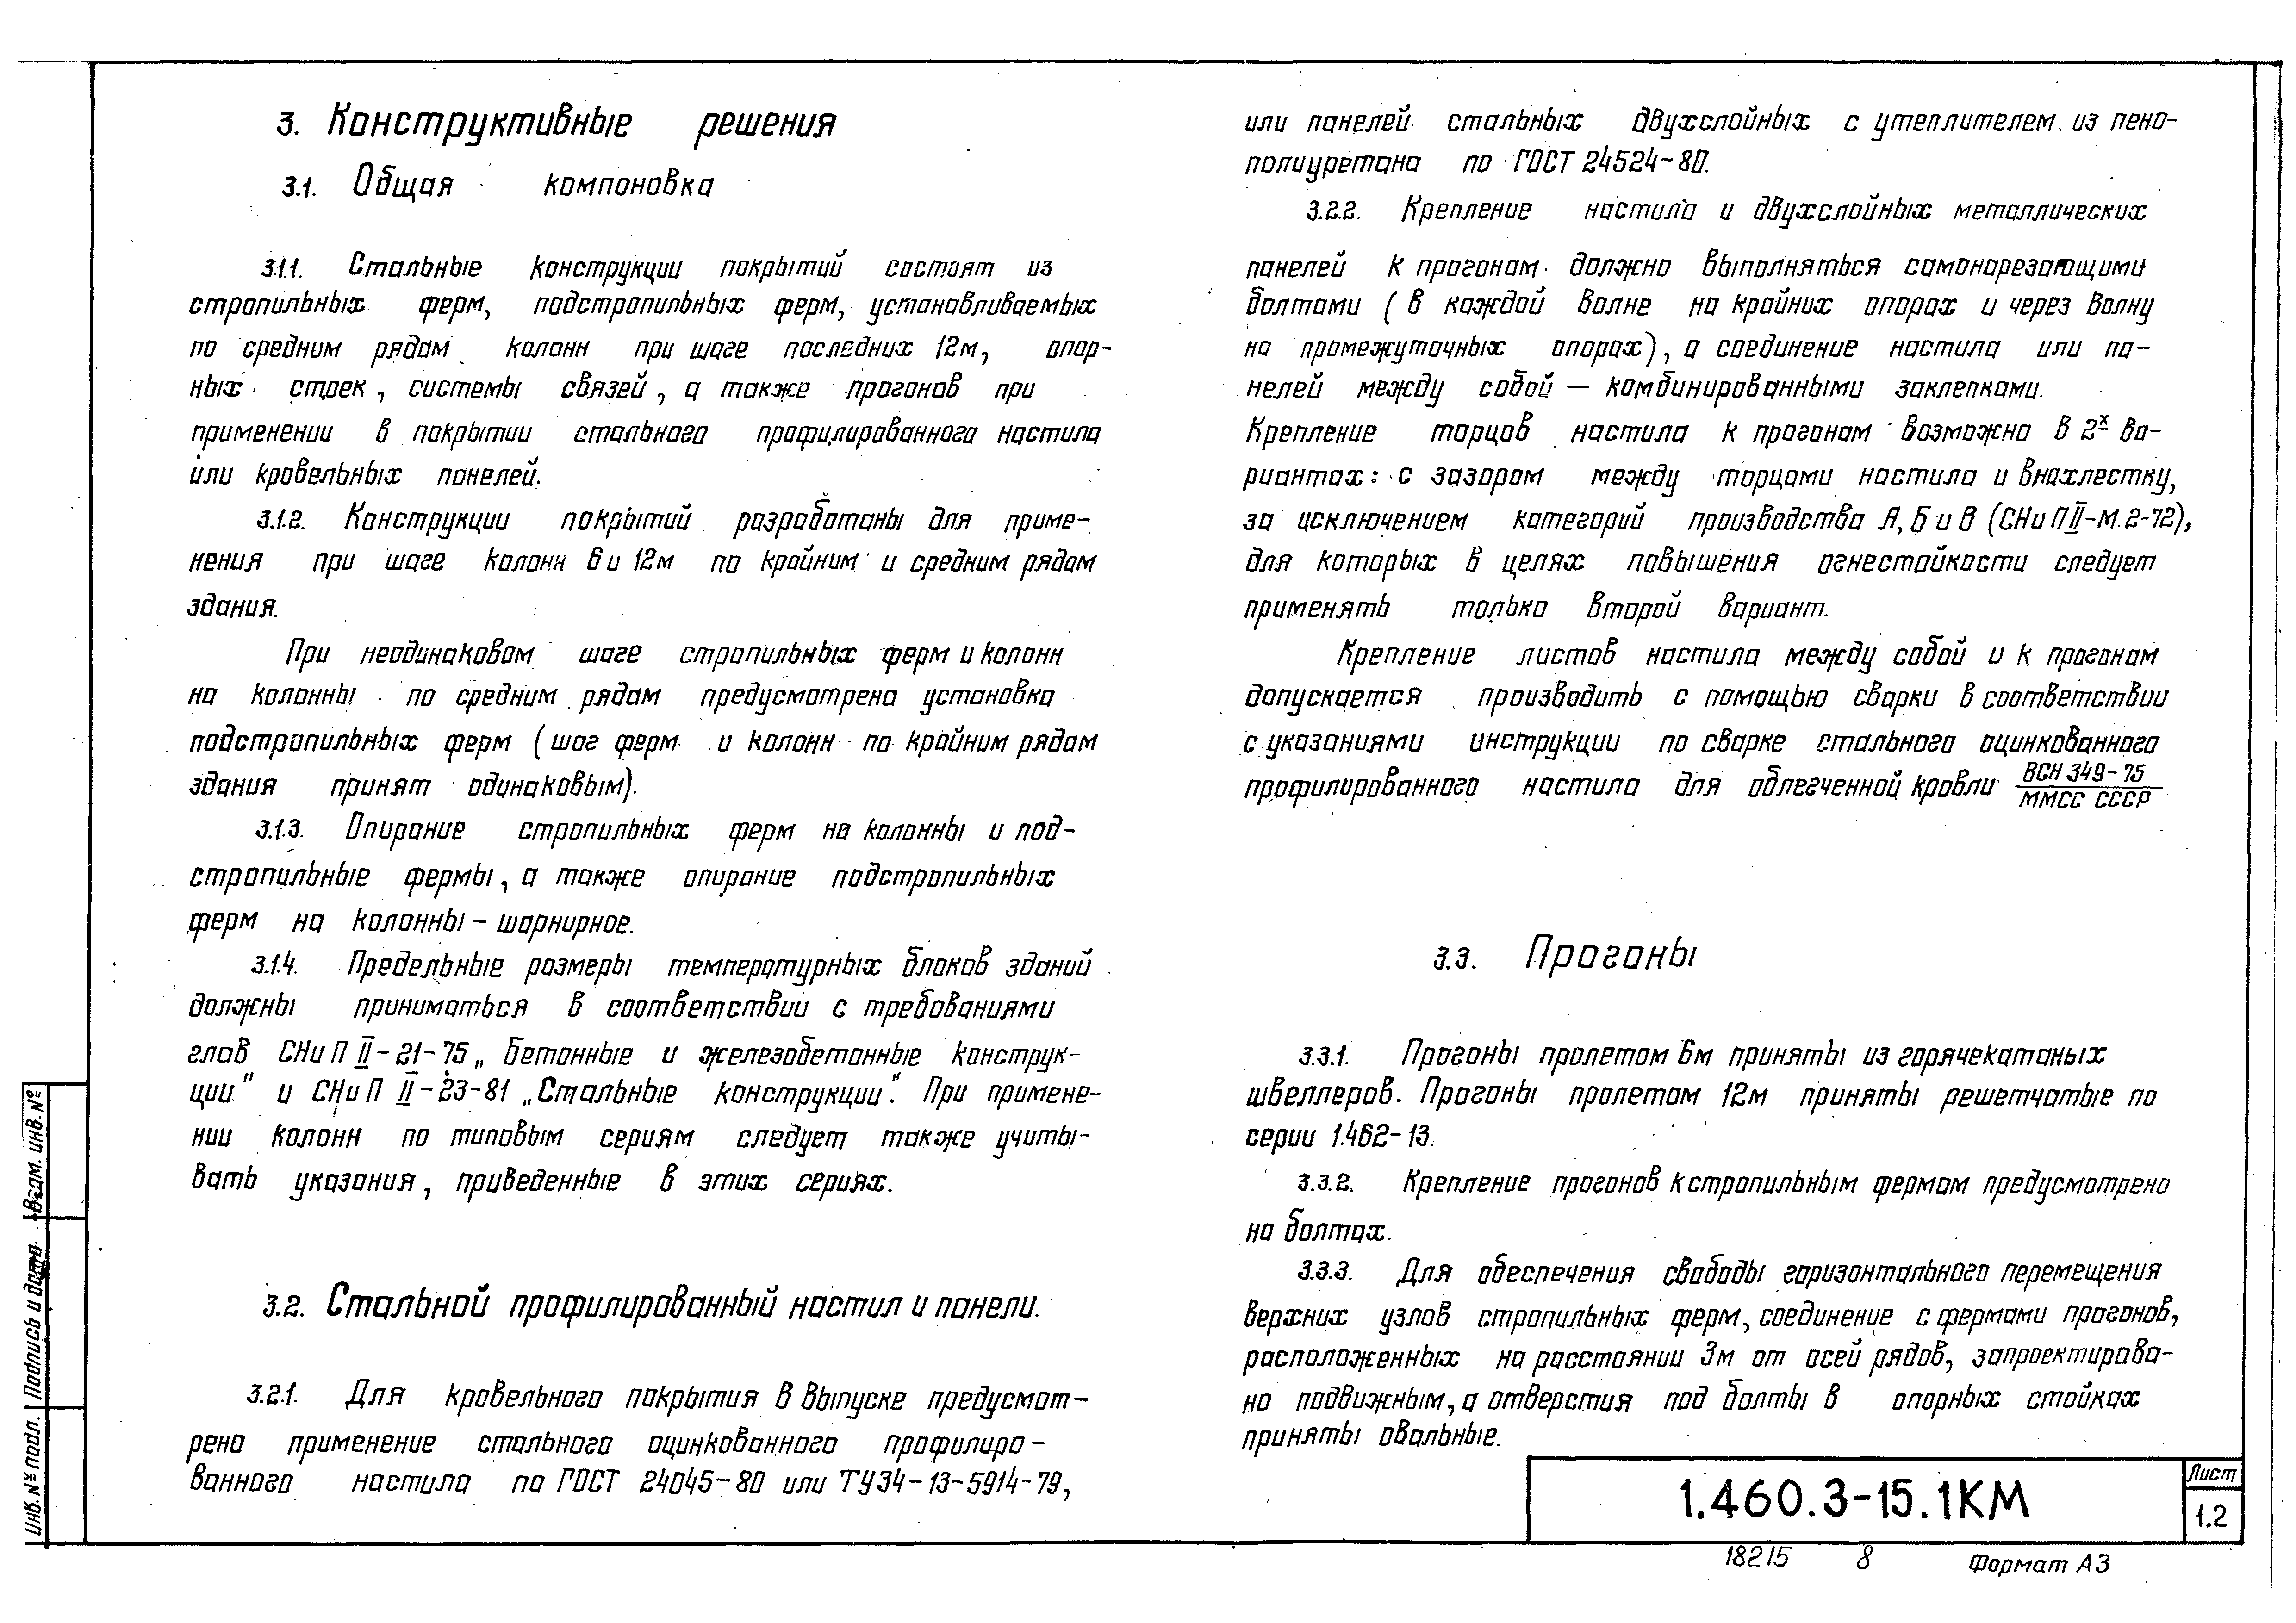 3. Конструктивные решения
3.1. Общая компоновка
3.1.1. Стальные конструкции покрытий состоят из
стропильных ферм, подстропильных ферм, устанавливаемых
по средним рядам колонн при шаге последних 12м, опор-
ных стоек, системы связей, а также прогонов при
применении в покрытии стального профилированного настила
или кровельных панелей.
3.1.2. Конструкции покрытий разработаны для приме-
нения при шаге колонн 6 и 12м по крайним и средним рядам
здания.
При неодинаковом шаге стропильных ферм и колонн
на колонны по средним рядам предусмотрена установка
подстропильных ферм (шаг ферм и колонн по крайним рядам
здания принят одинаковым).
3.1.3. Опирание стропильных ферм на колонны и под-
стропильные фермы, а также опирание подстропильных
ферм на колонны - шарнирное.
3.1.4. Предельные размеры температурных блоков зданий
должны приниматься в соответствии с требованиями
глав СНиП II-21-75 „Бетонные и железобетонные конструк-
ции" и СНиП II-23-81 „Стальные конструкции". При примене-
нии колонн по типовым сериям следует также учиты-
вать указания, приведенные в этих сериях.
3.2. Стальной профилированный настил и панели.
3.2.1. Для кровельного покрытия в выпуске предусмот-
рено применение стального оцинкованного профилиро-
ванного настила по ГОСТ 24045-80 или ТУ34-13-5914-79,
или панелей стальных двухслойных с утеплителем из пено-
полиуретана по ГОСТ 24524-80.
3.2.2. Крепление настила и двухслойных металлических
панелей к прогонам должно выполняться самонарезающими
болтами (в каждой волне на крайних опорах и через волну
на промежуточных опорах), а соединение настила или па-
нелей между собой - комбинированными заклепками.
Крепление торцов настила к прогонам возможно в 2х ва-
риантах: с зазором между торцами настила и внахлестку,
за исключением категорий производства А, Б и В (СНиП II-М.2-72),
для которых в целях повышения огнестойкости следует
применять только второй вариант.
Крепление листов настила между собой и к прогонам
допускается производить с помощью сварки в соответствии
с указаниями инструкции по сварке стального оцинкованного
профилированного настила для облегченной кровли ВСН 349-75
ММСС СССР
3.3. Прогоны
3.3.1. Прогоны пролетом 6м приняты из горячекатаных
швеллеров. Прогоны пролетом 12м приняты решетчатые по
серии 1.462-13.
3.3.2. Крепление прогонов к стропильным фермам предусмотрено
на болтах.
3.3.3. Для обеспечения свободы горизонтального перемещения
верхних узлов стропильных ферм, соединение с фермами прогонов,
расположенных на расстоянии 3м от осей рядов, запроектирова-
но подвижным, а отверстия под болты в опорных стойках
приняты овальные.
Инв. № подл. Подпись и дата Взам. инв. №
1.460.3-15.1КМ
Лист
1.2
18215 8 Формат А3